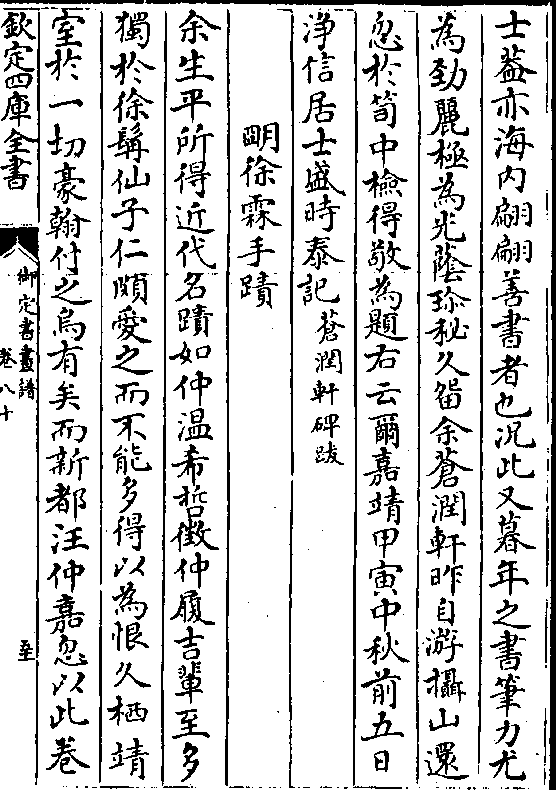 士葢亦海内翩翩善書者也况此又暮年之書筆力尤
為勁麗極為光蔭珍秘久留余蒼潤軒昨自游攝山還
忽於笥中檢得敬為題右云爾嘉靖甲寅中秋前五日
浄信居士盛時泰記蒼潤軒碑跋
明徐霖手蹟
余生平所得近代名蹟如仲温希哲徵仲履吉軰至多
獨於徐髯仙子仁頗愛之而不能多得以為恨久栖靖
室於一切豪翰付之烏有矣而新都汪仲嘉忽以此卷
欽定四庫全書
御定書畫譜
卷八十
至